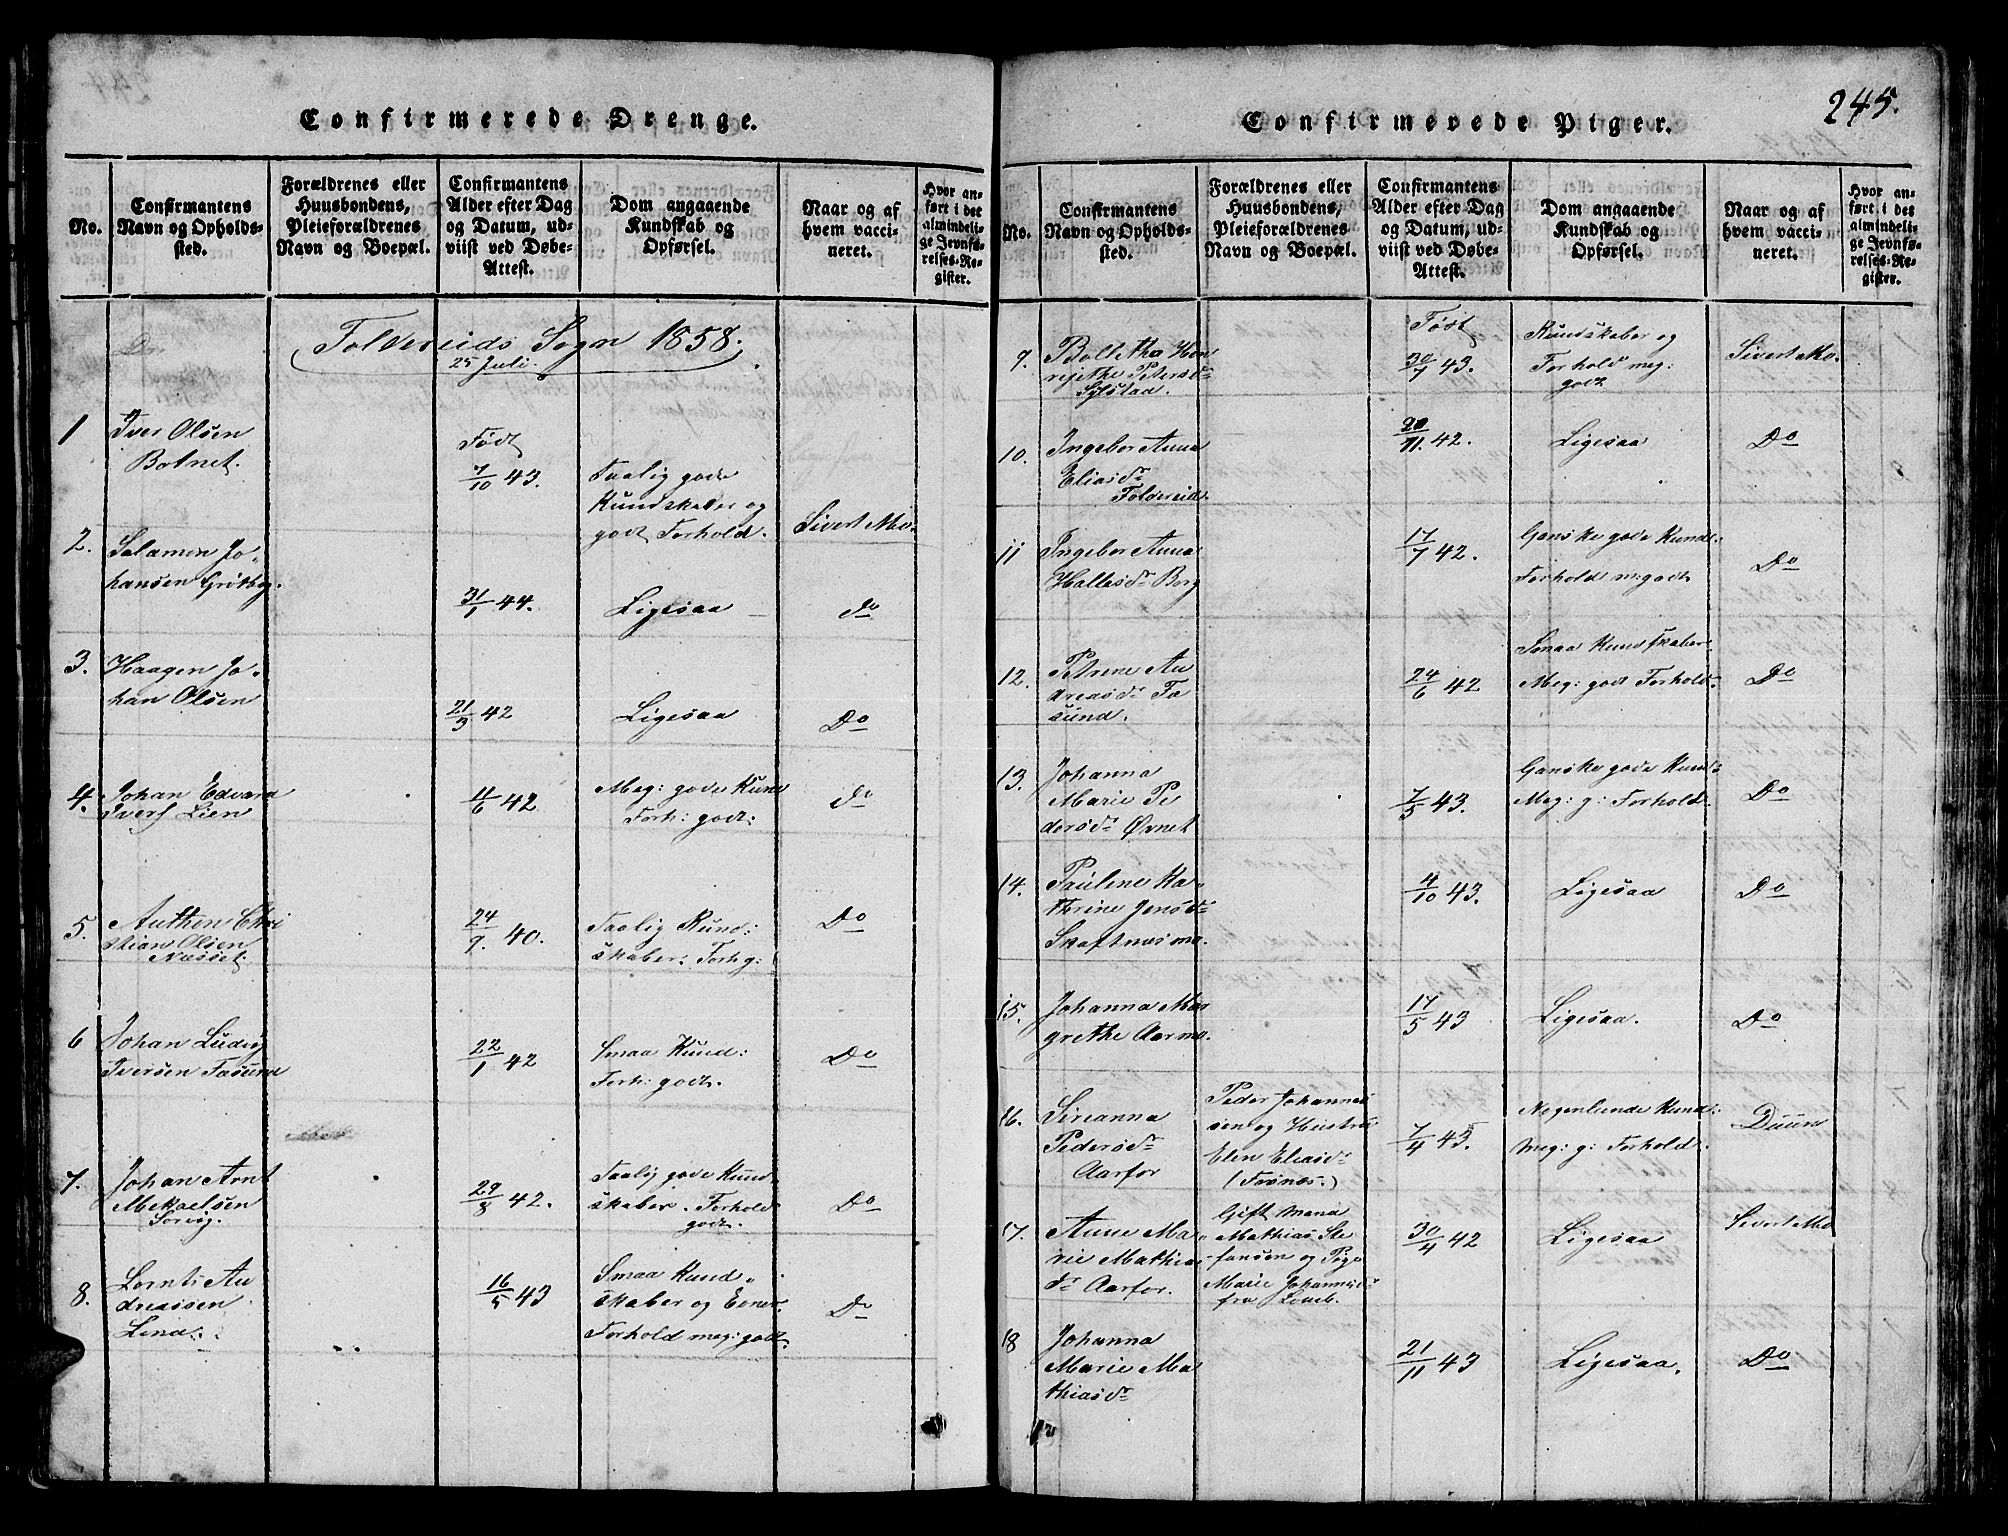 Confirmerede Drenge.
No.
Confirmantens
Navn og Opholds-
sted.
Forældrenes eller
Huusbondens,
Pleieforældrenes
Navn og Boepæl.
Confirmantens
Alder efter Dag
og Datum, ud-
viist ved Døbe-
Attest.
Dom angaaende
Kundskab og
Opførsel.
Naar og af
hvem vacci-
neret.
Hvor an-
ført i det
almindeli-
ge Jevnfø-
relses-Re-
gister.
Foldereids Sogn 1858.
25 Juli.
1
Iver Olsen
Botnet.
Født
7/10 43.
Taalig gode
Kundskaber og
godt Forhold.
Sivert Mo.
2.
Salamon Jo-
hansen Grøtbog.
31/1 44.
Ligesaa
do
3.
Haagen Jo-
han Olsen
21/3 42
Ligesaa
Do
4.
Johan Edvard
Ivers Lien
4/6 42
Meg: gode Kund
Forh: godt.
do
5.
Anthon Chri
stian Olsen
Næsset.
24/9 40.
Taalig Kund:
skaber. Forh g:
Do
6
Johan Ludvig
Iversen Fasund
22/1 42
Smaa Kund:
Forh: godt.
Do
7.
Johan Arnt
Mekaelsen
Sørvig.
29/8 42.
Taalig gode Kund
skaber. Forhold
godt.
Do
8.
Lornts An
dreassen
Lind.
16/5 43
Smaa Kund
skaber og Evner.
Forhold meg: godt
Do
245.
Confirmerede Piger.
No.
Confirmantens
Navn og Opholds-
sted.
Forældrenes eller
Huusbondens,
Pleieforældrenes
Navn og Boepæl.
Confirmantens
Alder efter Dag
og Datum, ud-
viist ved Døbe-
Attest.
Dom angaaende
Kundskab og
Opførsel.
Naar og af
hvem vacci-
neret.
Hvor an-
ført i det
almindeli-
ge Jevnfø-
relses-Re-
gister.
9.
Boletha Hen
rijethe Petersdr
Sylstad.
Født
30/7 43.
Kundskaber og
Forhold meg:
godt
Sivert Mo.
10.
Ingebor Anna
Eliasdr
Foldereid
20/11. 42.
Ligesaa
Do
11
Ingebor Anna
Hallesdr Borg
17/7 42.
Ganske gode Kunds.
Forhold m: godt
Do
12.
Petrine An
dreasdr Fa
sund.
24/6 42
Smaa Kundskaber
Meg: godt Forhold.
Do
13.
Johanna
Marie Pe
dersdr Øvnet
7/5 43.
Ganske gode Kund:
Meg: g: Forhold
Do
14.
Pauline Ka-
thrine Jensdr
Skaftnesmo.
4/10 43.
Ligesaa
Do
15.
Johanna Mar
grethe Aarmo.
17/5 43
Ligesaa.
Do
16.
Sirianna
Pedersdr
Aarfor
Peder Johannes
sen og Hustru
Elen Eliasdr
(Fosnæs.)
7/4 43.
Nogenlunde Kund:
Meg: g: Forhold.
Duun
17.
Anne Ma
rie Mathias
dr Aarfor.
Gift Mand
Mathias Ste
fansen og Pige
Marie Johannesdr
fra
30/4 42
Ligesaa
Sivert Mo
18
Johanna
Marie Ma
thiasdr
21/11 43
Ligesaa.
Do